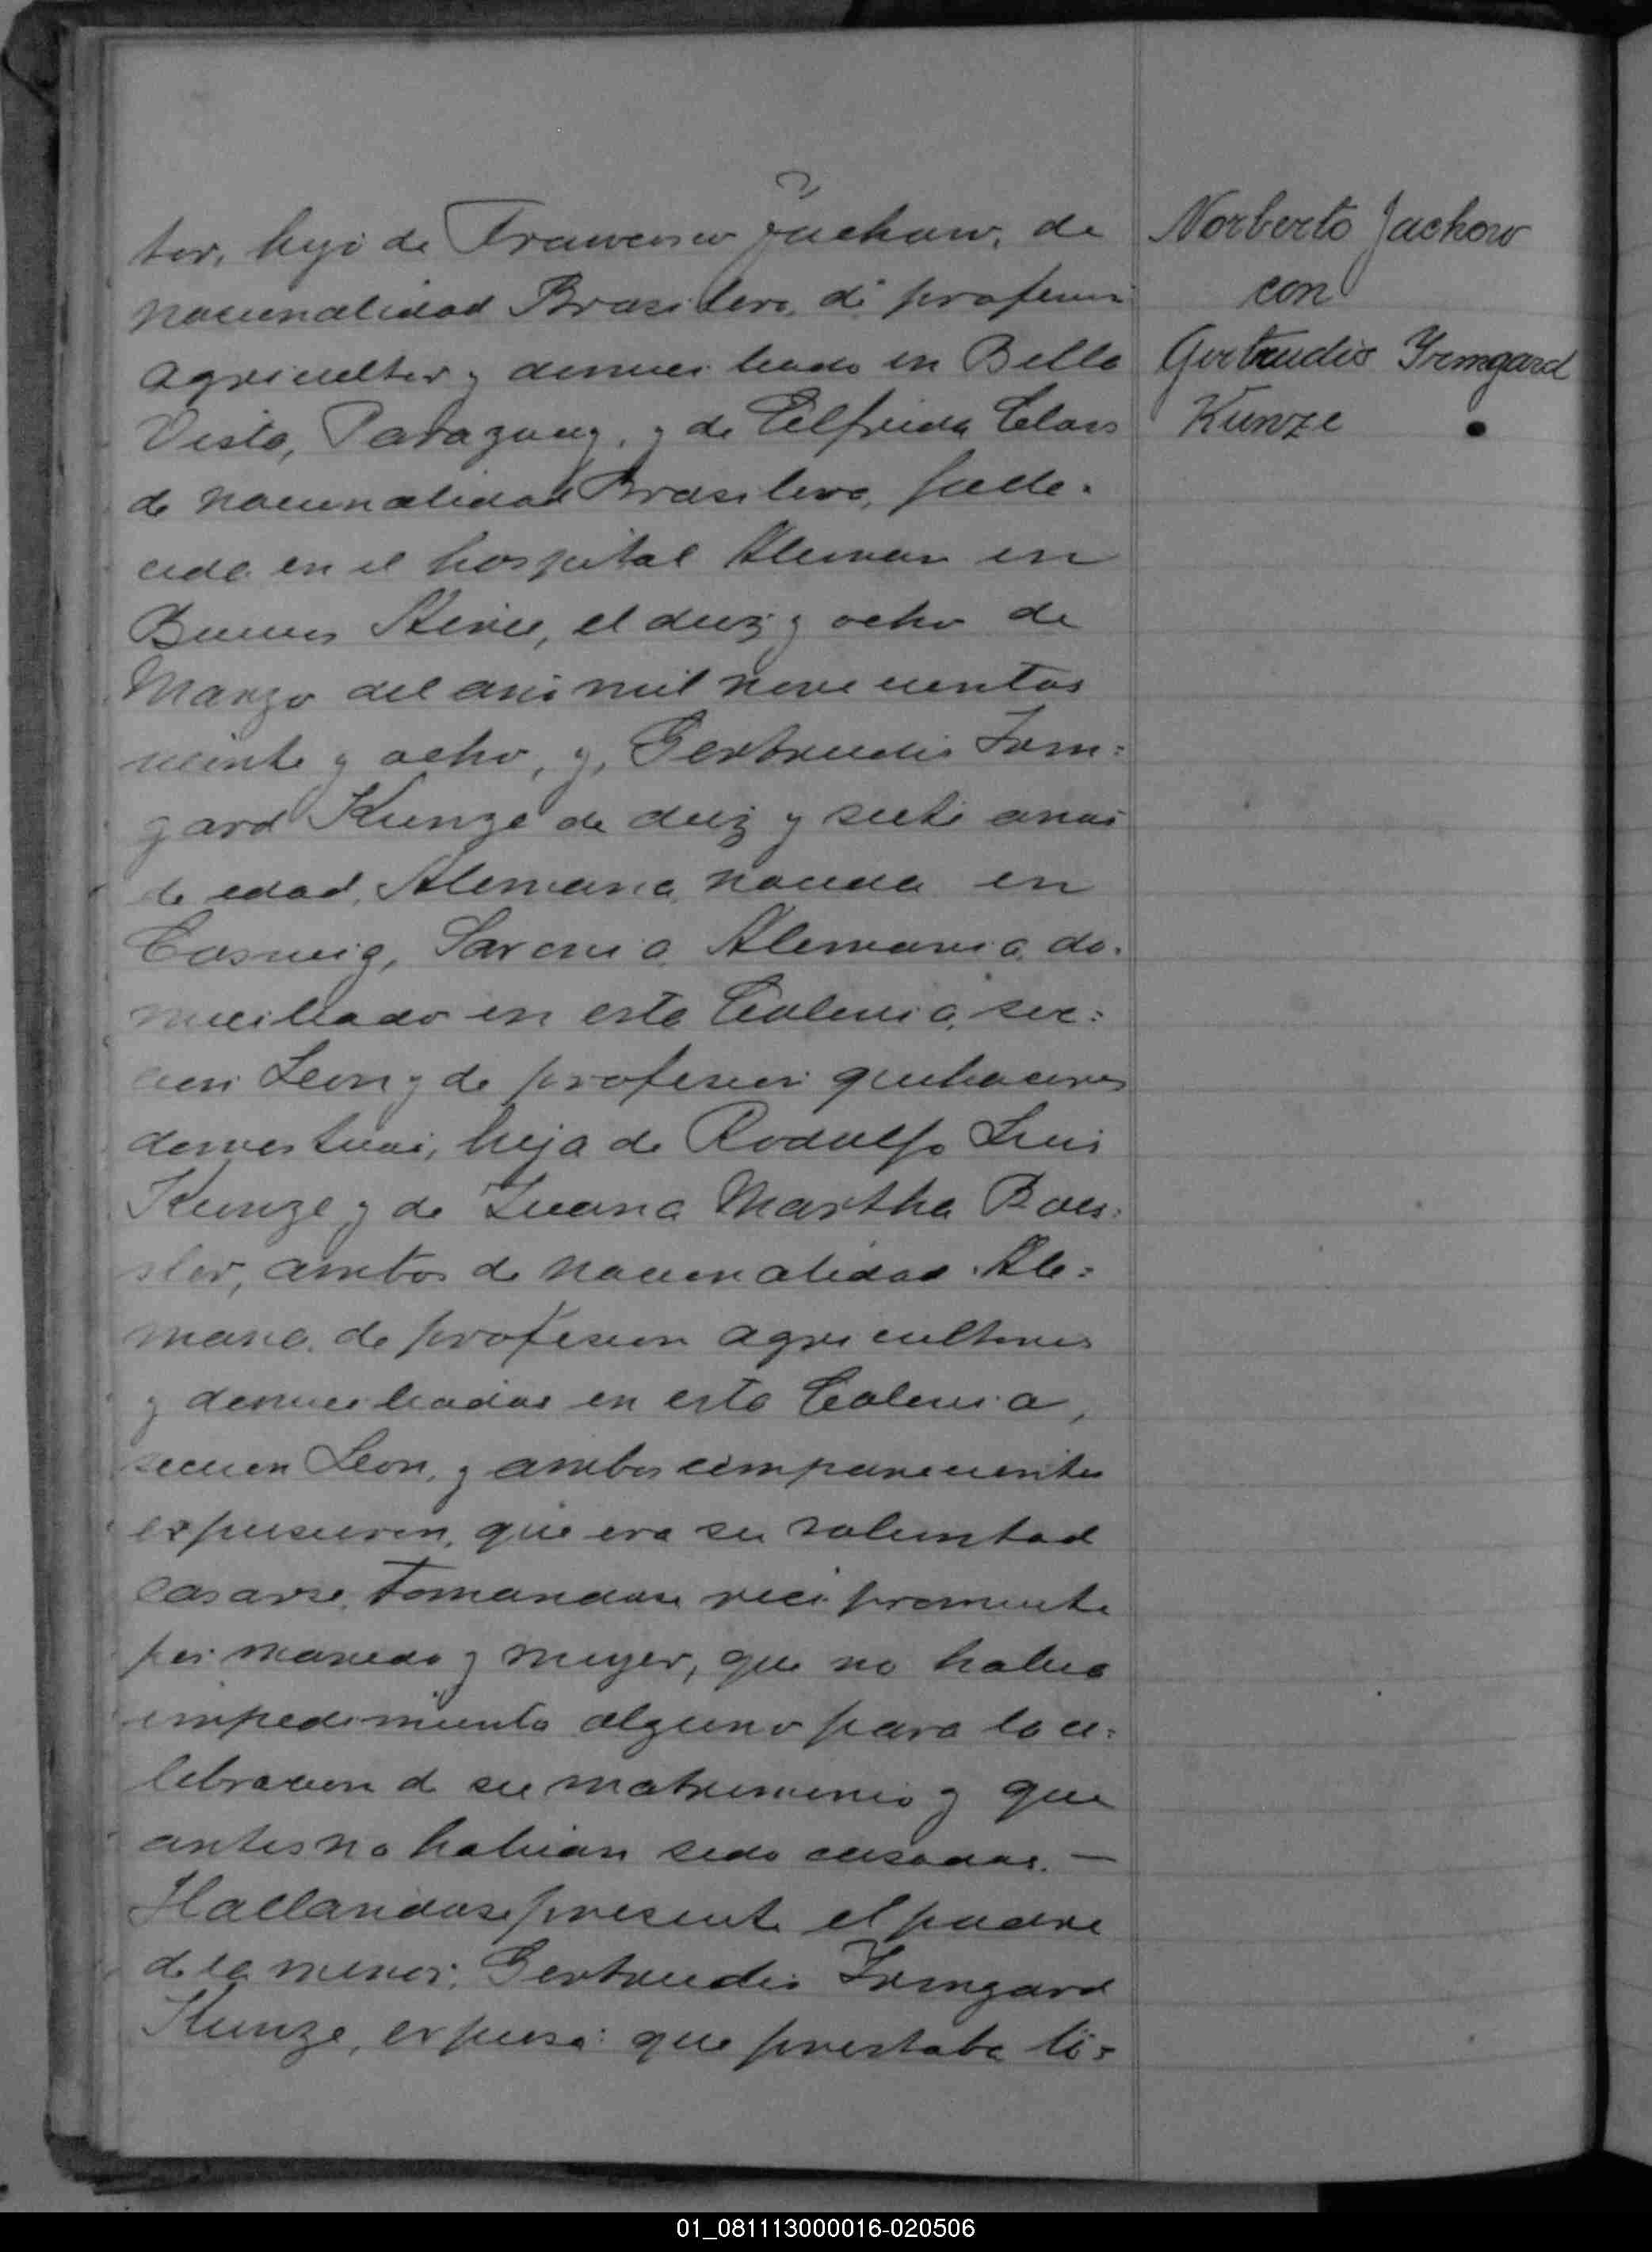 tor, hijo de Francisco Jachow, de
nacionalidad Brasilera, de profesion
agricultor y domiciliado en Bella
Vista, Paraguay, y de Elfrieda Class
de nacionalidad Brasilera, falle=
cida en el hospital Aleman en
Buenos Aires, el diez y ocho de
Marzo del año mil novecientos
veinte y ocho, y, Gertrudis Irm=
gard Kunze de diez y siete años
de edad, Alemana, nacida en
Coswig, Saxonia Alemania, do=
miciliado en esta Colonia, sec=
cion Leon y de profesion quehaceres
domesticos, hija de Rodulfo Luis
Kunze y de Juana Martha Boes=
sler, ambos de nacionalidad Ale=
mana, de profesion agricultores
y domiciliados en esta Colonia,
seccion Leon, y ambos comparecientes
expusieron, que era su voluntad
casarse, tomandose reciprocmente
por marido y mujer, que no habia
impedimiento alguno para la ce=
lebracion de su matrimonio y que
antes no habian sido casados. —
Hallandose presente el padre
de la menor, Gertrudis Irmgard
Kunze, expuso: que prestaba li=
Norberto Jachow
con
Gertrudis Irmgard
Kunze
01_081113000016-020506